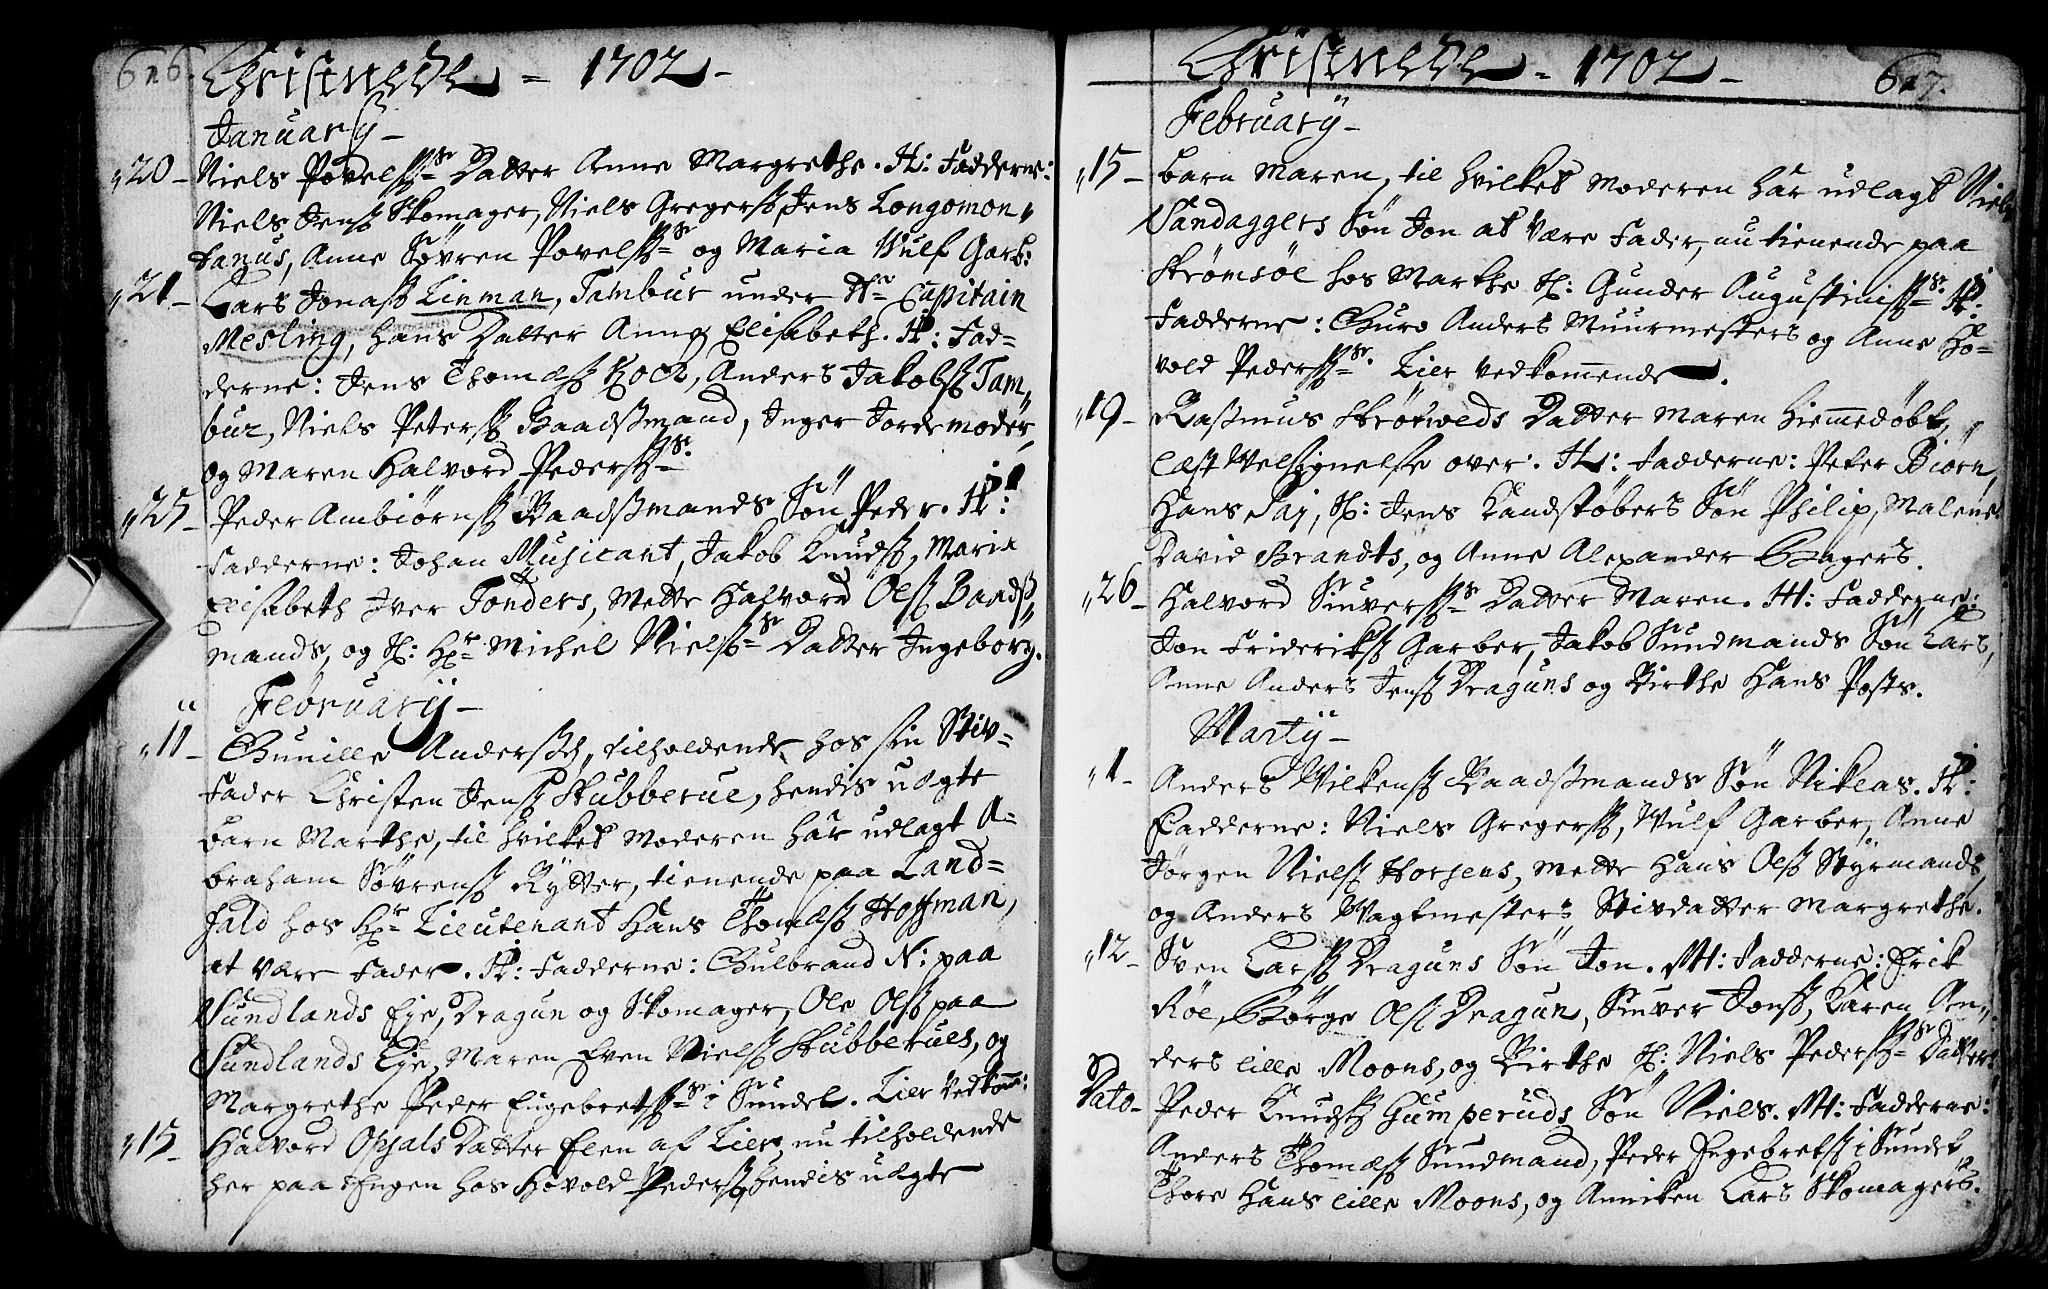 626. Christnede = 1702 –
January –
20 – Niels Povelss: Datter Anne Margrethe. H: Fadderne:
Niels Jenss Skomager, Niels Gregerss, Jens Longomon
tanus, Anne Søvren Povelss: og Maria Wulf Garb:
21 – Lars Jonass Linman, Tambur under Hr Capitain
Mesling, hans Datter Anna Elisabeth. H: Fad=
derne: Jens Thomæss Kock, Anders Jakobss Tam
bur, Niels Peterss Baadssmand, Inger Jordemoder,
og Maren Halvord Pederss:
25 – Peder Ambiørnss Baadssmands Søn Peder. H:
Fadderne: Johan Musicant, Jakob Knudss, Maria
Elisabeth Iver Tonders, Mette Halvord Olss Baadss
mands, og Sl: Hr Michel Nielss: Datter Ingeborg.
February –
11 – Gunille Anderssd, tilholdende hos sin Stiv=
fader Christen Jenss Skubberue, hendis uægte
barn Marthe, til hvilket Moderen har udlagt A=
braham Søvrenss Rytter, tienende paa Land=
fald hos Hr Lieutenant Hans Thomæss Hoffman,
at være Fader. H: Fadderne: Gulbrand N: paa
Sundlands Eje, Dragun og Skomager, Ole Olss paa
Sundlands Eje, Maren Even Nielss Skubberues, og
Margrethe Peder Engebretss: i Sundet. Lier vedkom:
15 – Halvord Opsals Datter Elen af Lier, nu tilholdende
her paa Engen hos Hovold Pederss, hendis uægte
Christnede = 1702 – 627.
February –
15 – barn Maren, til hvilket Moderen har udlagt Niels
Sandaggers Søn Jon at være Fader, nu tienende paa
Strømsøe hos Marthe Sl: Gunder Augustiniss: H:
Fadderne: Guro Anders Muurmesters og Anne Ho=
vold Pederss: Lier vedkommende.
19 – Rassmus Skrøtveds Datter Maren hiemmedøbt,
læst Velsignelse over. H: Fadderne: Peter Biørn,
Hans Saj, Sl: Jens Kandstøbers Søn Philip, Malene
David Brandts, og Anne Alexander Bagers.
26 – Halvord Siuverss: Datter Maren. H: Fadderne:
Jon Frideriks Garber, Jakob Sundmands Søn Lars,
Anne Anders Jenss Draguns og Birthe Hans Posts.
Marty –
1 – Anders Wilkenss Baadssmands Søn Niklas. H:
Fadderne: Niels Gregerss, Wulf Garber, Anne
Jørgen Nielss Horsens, Mette Hans Olss Styrmands,
og Anders Vagtmesters Stivdatter Margrethe.
12 – Sven Larss Draguns Søn Jon. M: Fadderne: Erik
Røe, Børge Olss Dragun, Siuver Jonss, Karen An
ders lille Moons, og Birthe Sl: Niels Pederss: Datter.
Dato – Peder Knudss Gumperuds Søn Niels. M: Fadderne:
Anders Thomæss Sundmand, Peder Engebretss i Sundet
Thore Hans lille Moons, og Anniken Lars Skomagers.